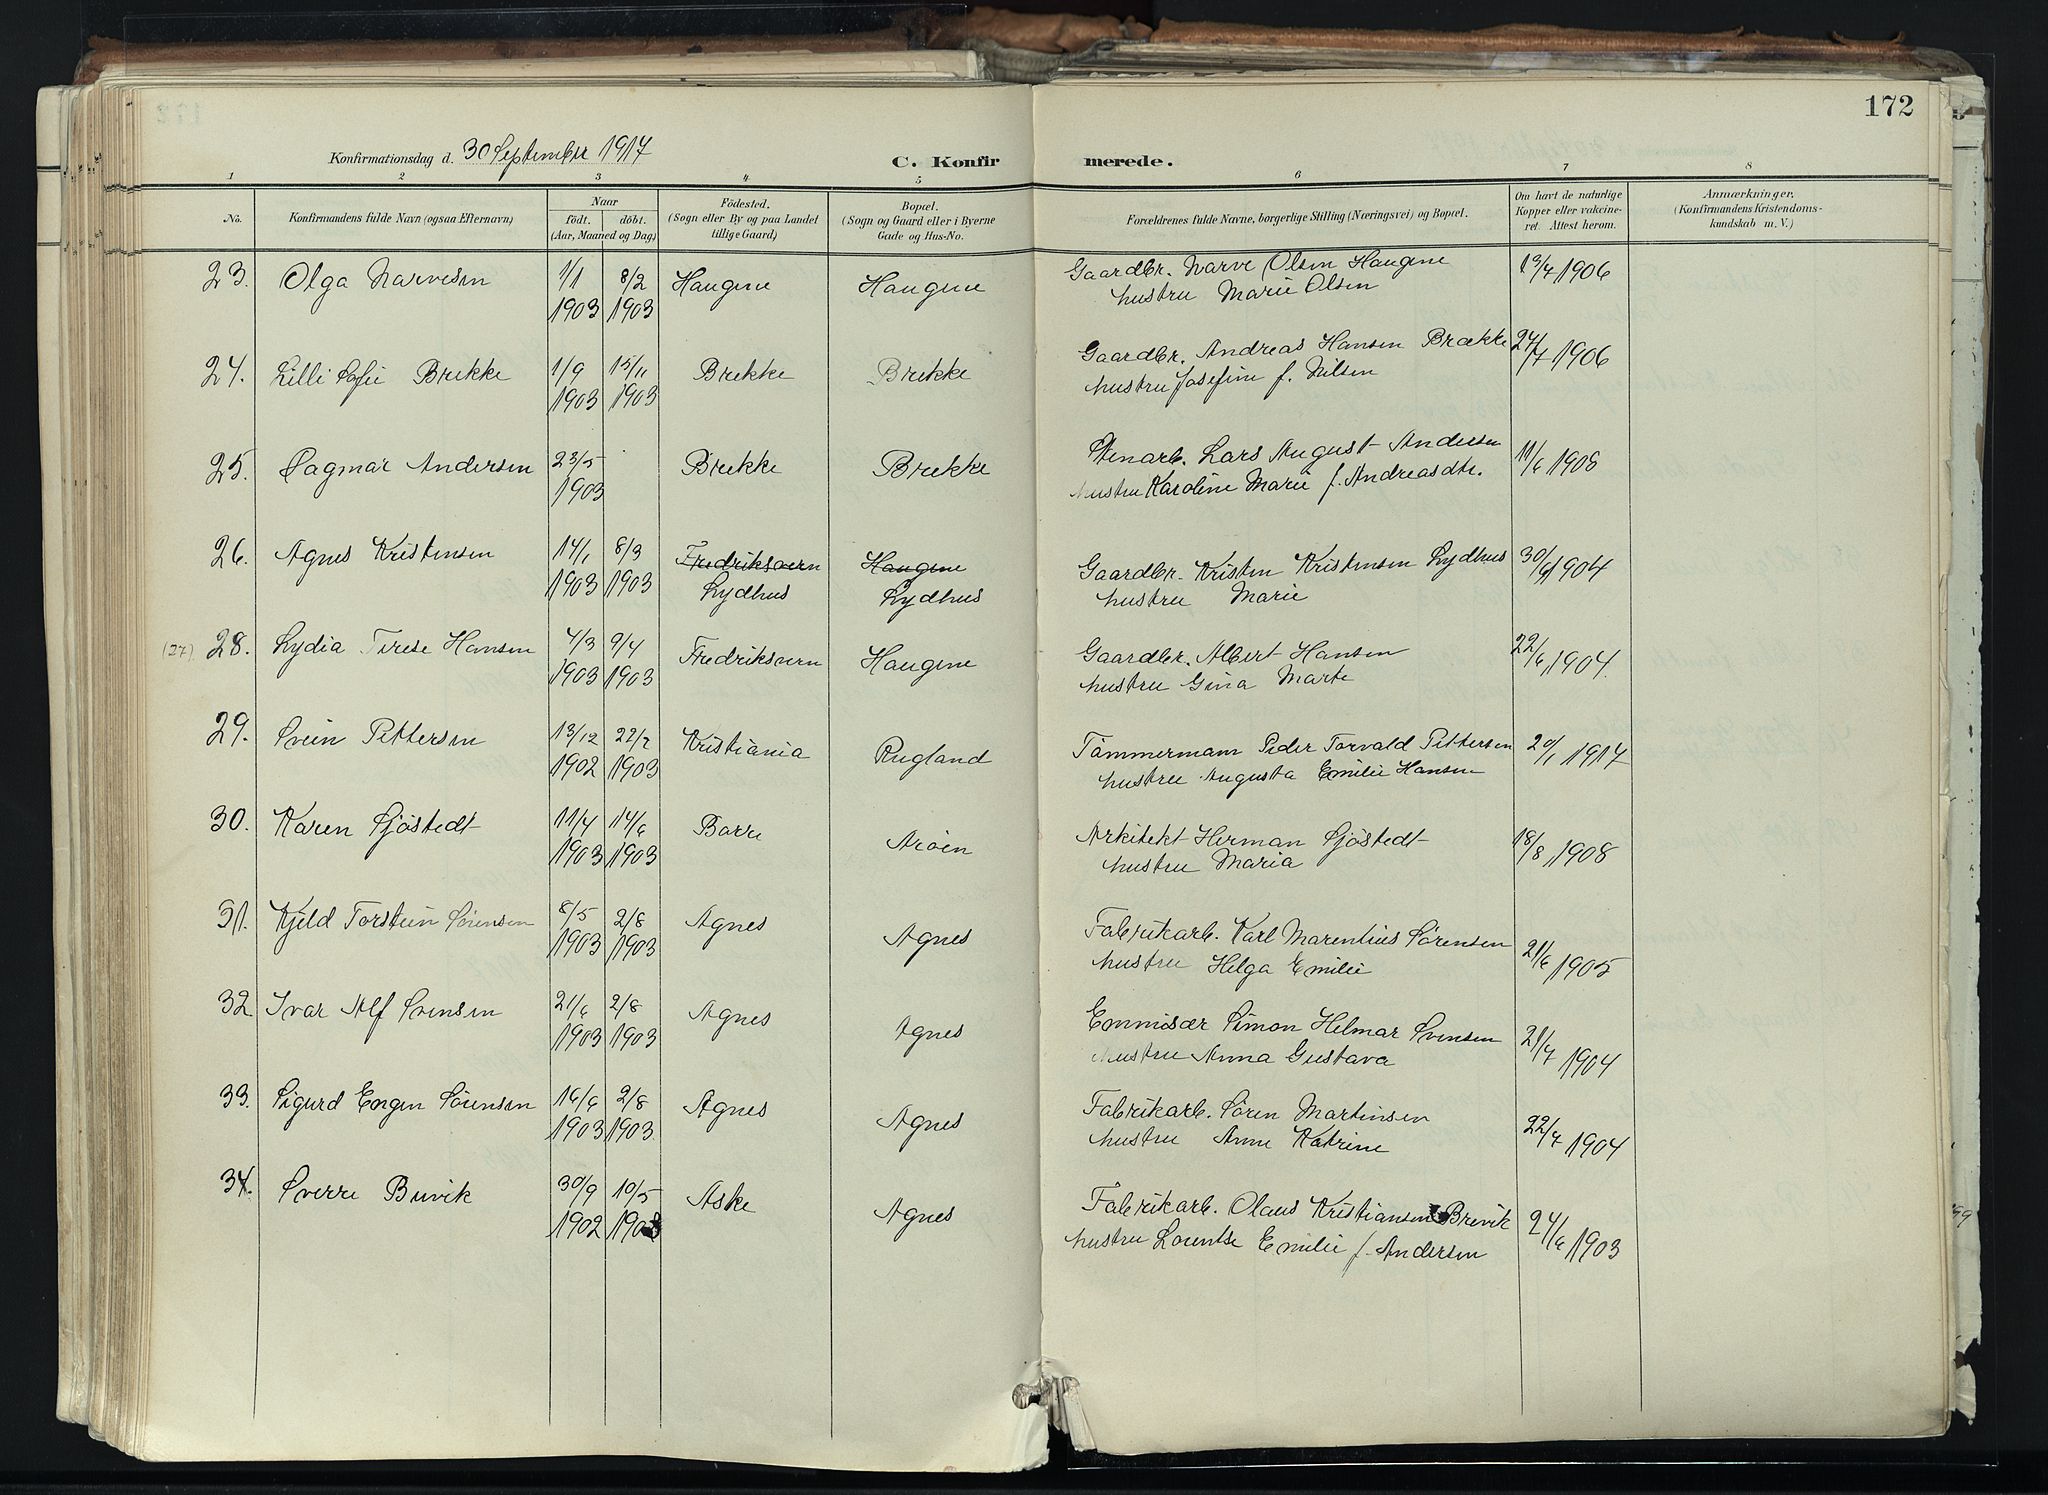 172
Konfirmationsdag d. 30 September 1917
C. Konfirmerede.
1 2 3 4 5 6 7 8
No. Konfirmandens fulde Navn (ogsaa Efternavn) Naar födt. döbt. (Aar, Maaned og Dag.) Födested. (Sogn eller By og paa Landet tillige Gaard.) Bopæl. (Sogn og Gaard eller i Byerne Gade og Hus-No. Forældrenes fulde Navne, borgerlige Stilling (Næringsvei) og Bopæl. Om havt de naturlige Kopper eller vakcineret. Attest herom. Anmærkninger. (Konfirmandens Kristendomskundskab m. V.)
23. Olga Narvesen 1/1 8/2 Haugene Haugene Gaardbr. Narve Olsen Haugene 13/7 1906
1903 1903 hustru Marie Olsen
24. Lilli Sofie Brekke 1/9 15/11 Brekke Brekke Gaardbr. Andreas Hansen Brække 24/7 1906
1903 1903 hustru Josefine f. Nilsen
25. Dagmar Andersen 23/5 Brekke Brekke Stenarb. Lars August Andersen 11/6 1908
1903 hustru Karoline Marie f. Andreasdtr.
26. Agnes Kristensen 14/1 8/3 Fredriksvern Haugene Gaardbr. Kristen Kristensen Lydhus 30/6 1904
1903 1903 Lydhus Lydhus hustru Marie
(27) 28. Lydia Terese Hansen 4/3 9/4 Fredriksvern Haugene Gaardbr. Albert Hansen 22/6 1904.
1903 1903 hustru Gina Marte
29. Svein Pettersen 13/12 22/7 Kristiania Rugland Tömmermann Peder Torvald Pettersen 20/1 1917
1902 1903 hustru Augusta Emilie Hansen
30. Karen Sjöstedt 11/4 14/6 Borre Aröen Arkitekt Herman Sjöstedt 18/8 1908
1903 1903 hustru Maria
31. Kjeld Torstein Sörensen 8/5 2/8 Agnes Agnes Fabrikarb. Karl Marentius Sörensen 21/6 1905
1903 1903 hustru Helga Emilie
32. Ivar Alf Svensen 21/6 2/8 Agnes Agnes Emmisær Simon Helmar Svensen 21/7 1904
1903 1903 hustru Anna Gustava
33. Sigurd Engen Sörensen 16/6 2/8 Agnes Agnes Fabrikarb. Sören Martinsen 22/7 1904
1903 1903. hustru Anne Katrine
34. Sverre Brevik 30/9 10/5 Aske Agnes Fabrikarb. Olaus Kristiansen Brevik 24/6 1903
1902 1903 hustru Lorentse Emilie f. Andersen